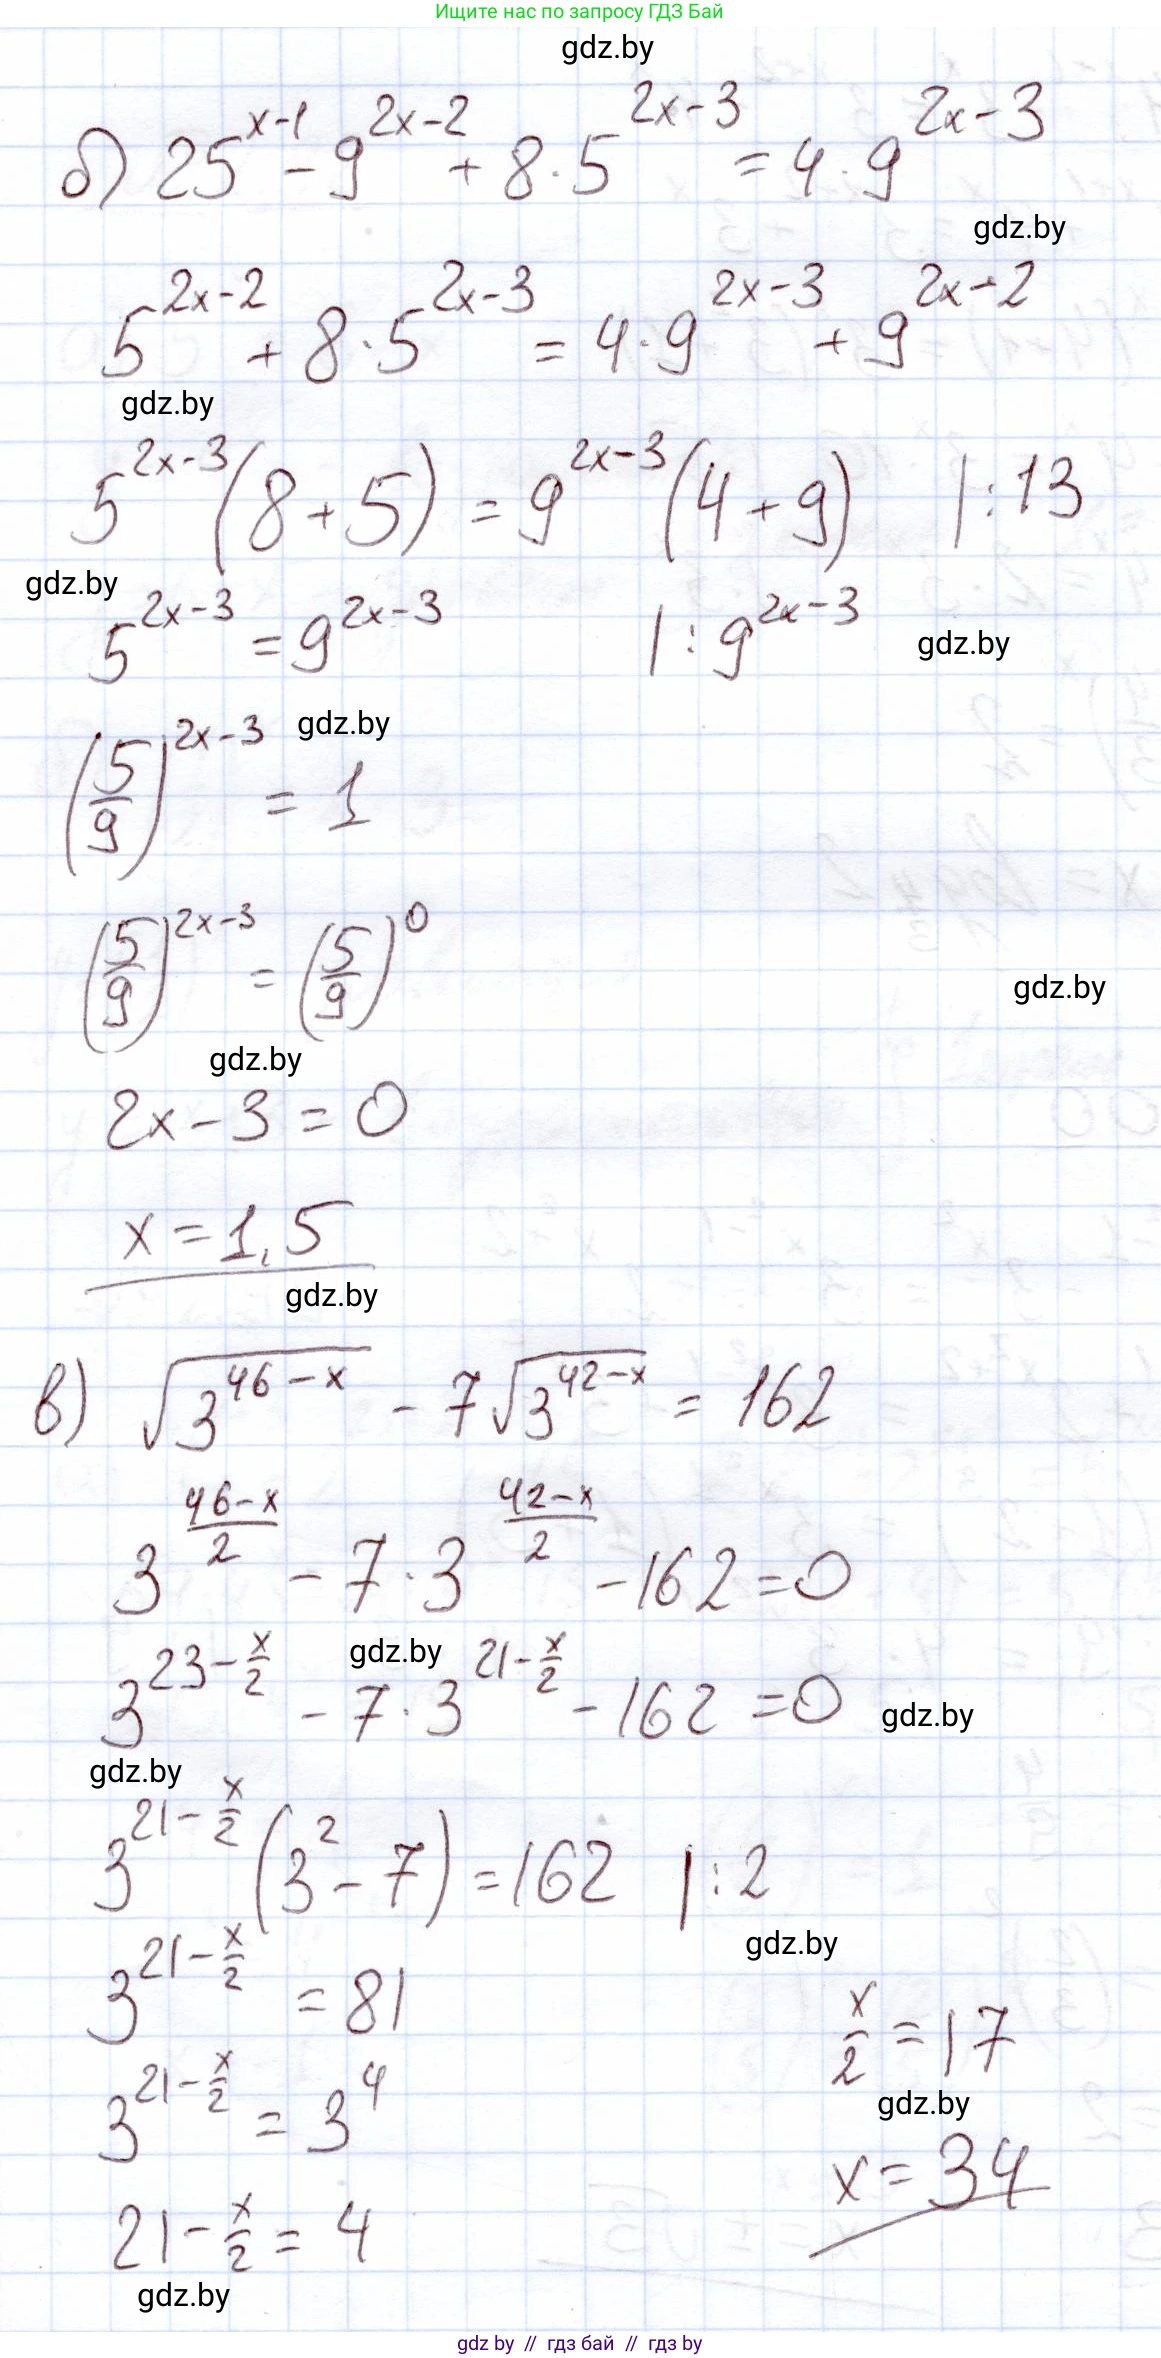 Ищите нас по запросу ГДЗ Бай
gdz.by
б) 25^{x-1} - 9^{2x-2} + 8·5^{2x-3} = 4·9^{2x-3}
gdz.by
5^{2x-2} + 8·5^{2x-3} = 4·9^{2x-3} + 9^{2x-2}
gdz.by
5^{2x-3}(8+5) = 9^{2x-3}(4+9) |:13
gdz.by
5^{2x-3} = 9^{2x-3} |:9^{2x-3}
gdz.by
gdz.by
(5/9)^{2x-3} = 1
(5/9)^{2x-3} = (5/9)^0
gdz.by
gdz.by
2x-3 = 0
x = 1,5
gdz.by
в) √(3^{46-x}) - 7√(3^{42-x}) = 162
3^{(46-x)/2} - 7·3^{(42-x)/2} - 162 = 0
gdz.by
3^{23-x/2} - 7·3^{21-x/2} - 162 = 0
gdz.by
gdz.by
3^{21-x/2}(3^2-7) = 162 |:2
gdz.by
3^{21-x/2} = 81
3^{21-x/2} = 3^4
21-x/2 = 4
gdz.by
x/2 = 17
gdz.by
x = 34
gdz by // гдз бай // гдз by